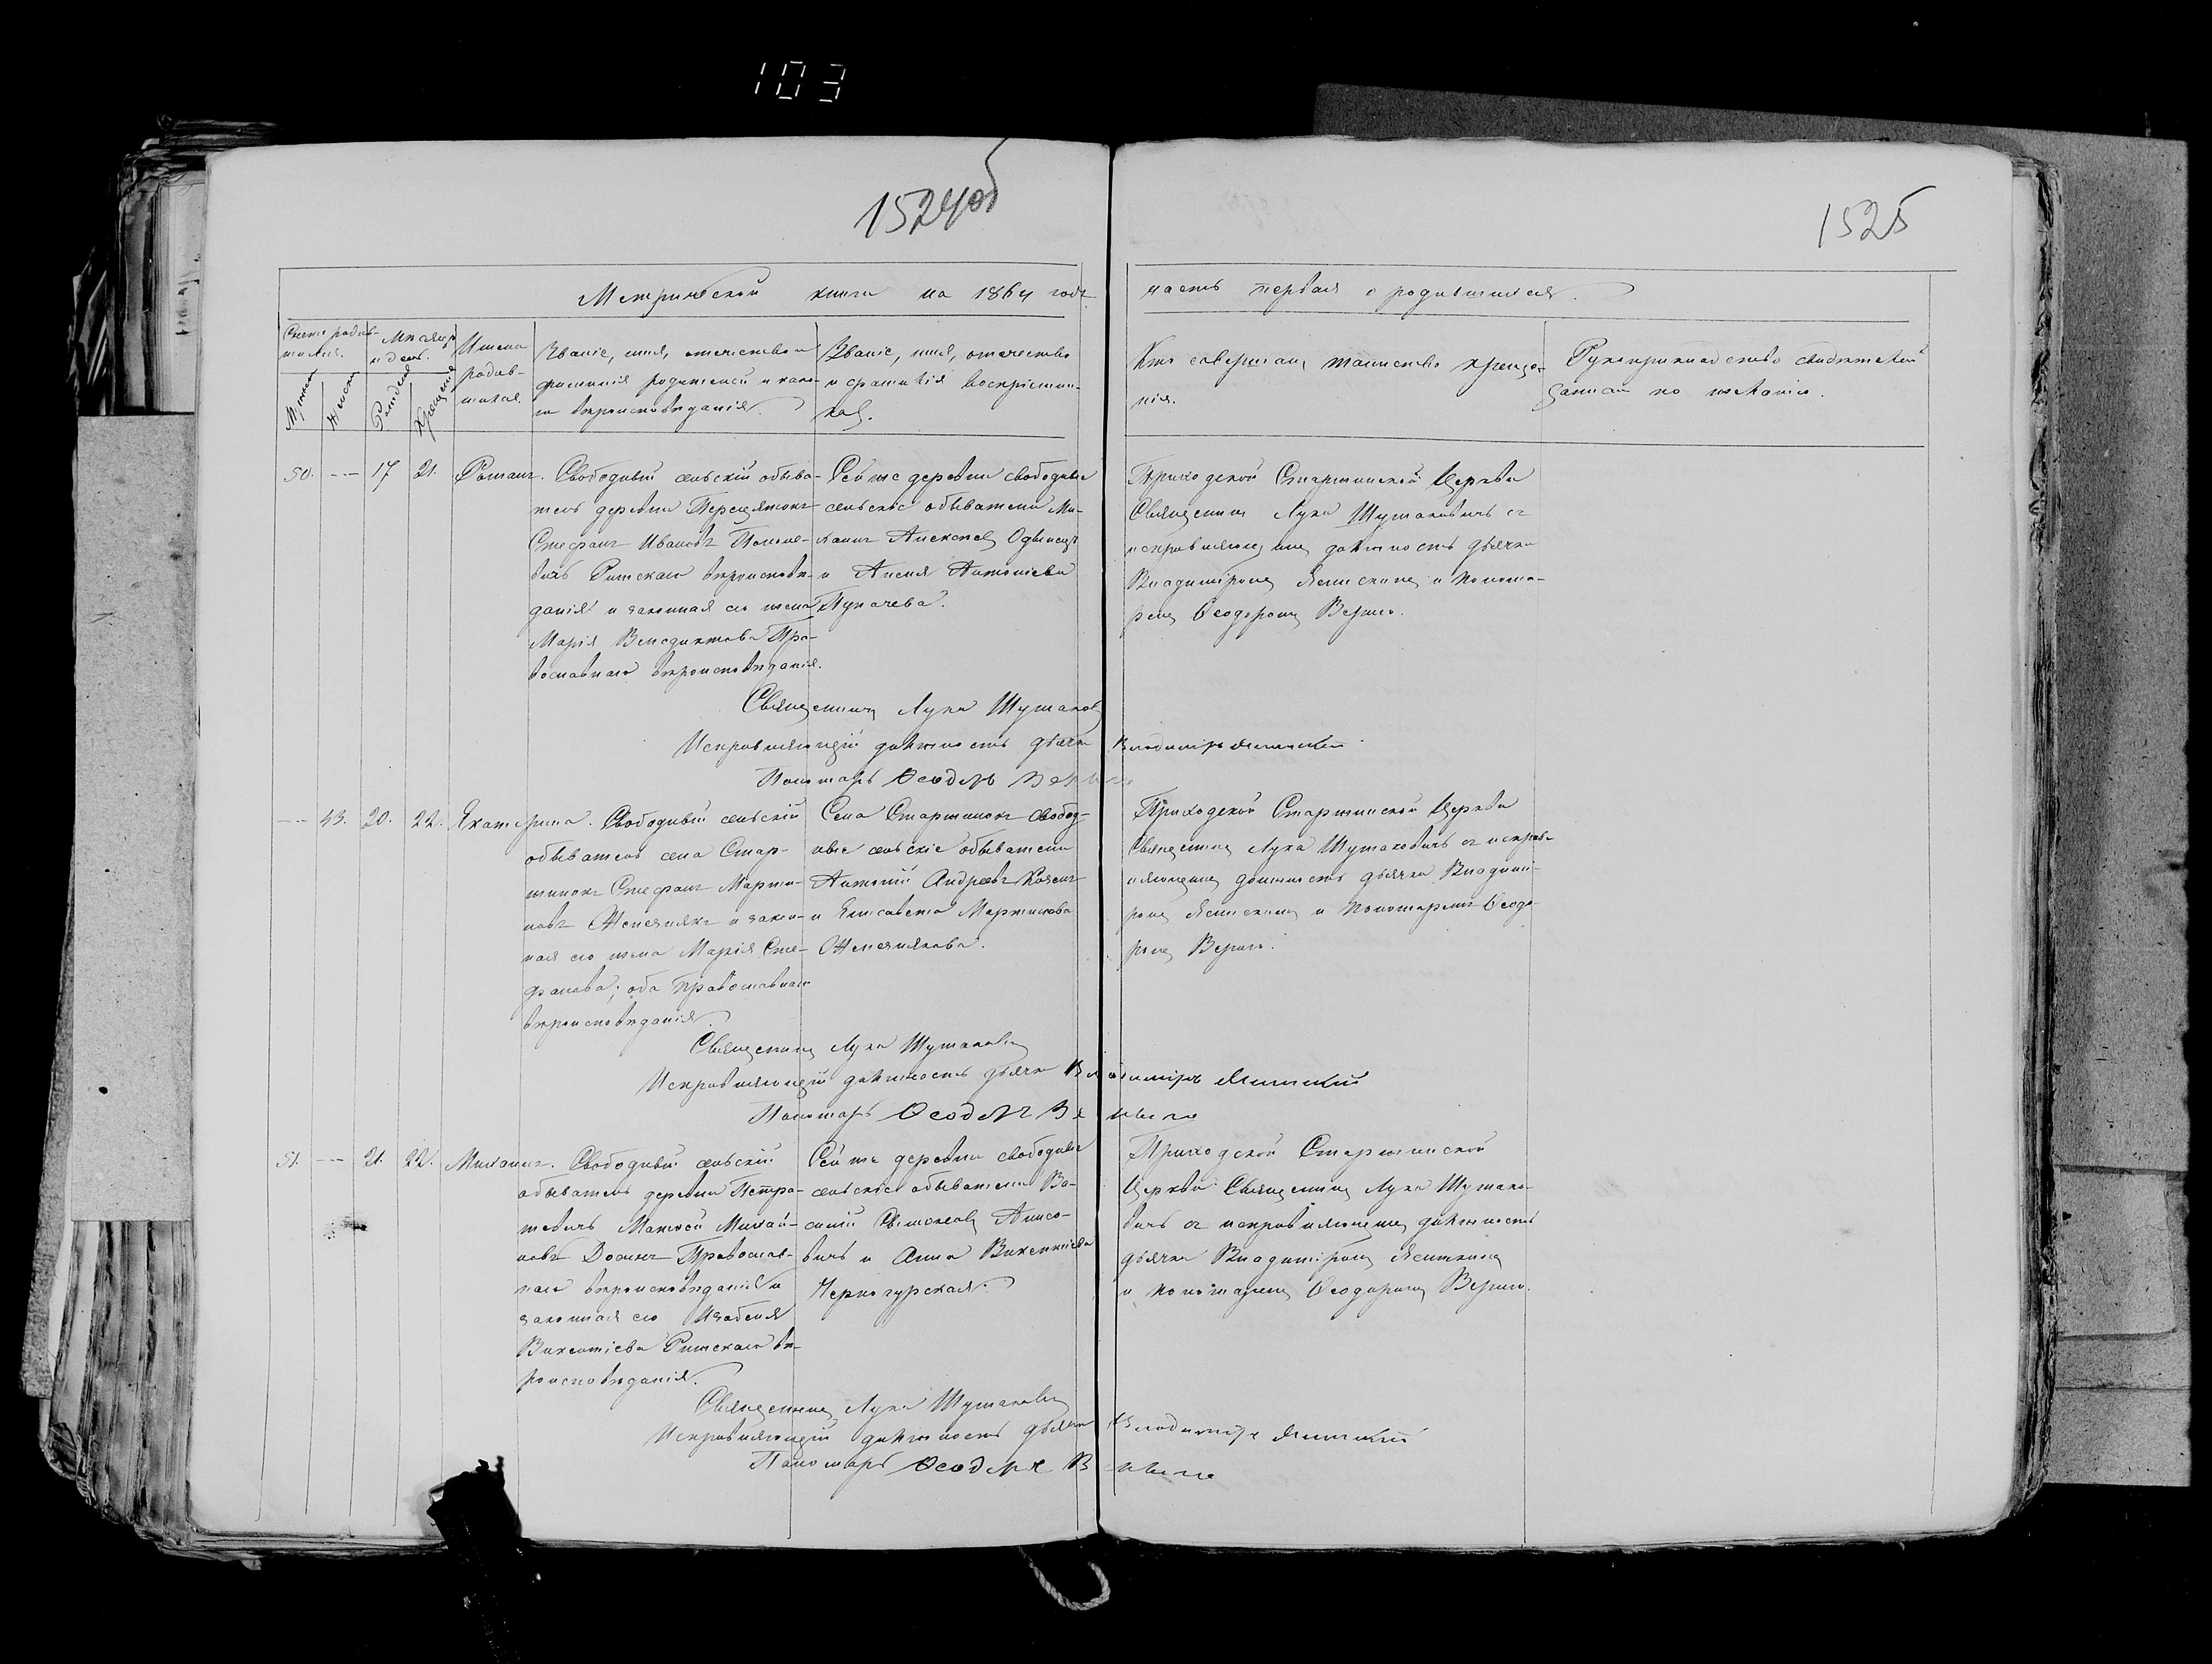 103
1524об
1525
Метрической книги на 1864 годъ
часть первая о родившихся.
Счетъ родив-
шихся.
Мужеск
Женск
Мѣсяцъ
и день.
Рожденія
Крещенія
Имена
родив-
шихся.
Званіе, имя, отчество и
фамилія родителей и како-
го вѣроисповѣданія.
Званіе, имя, отечество
и фамилія воспріемни-
ковъ.
Кто совершалъ таинство креще-
нія.
Рукоприкладство свидѣтелей
записи по желанію.
50. -- 17 21. Романъ.
Свободный сельскій обыва-
тель деревни
Стефанъ Ивановъ
Римскаго вѣроисповѣ-
данія и законная его жена
Марія Венедиктова Пра-
вославнаго вѣроисповѣданія.
Сей же деревни свободные
сельскіе обыватели Ми-
хаилъ Алексѣевъ Одынецъ
и Антоніева
Пукачева.
Приходской Старжинской Церкви
Священникъ Лука Шумаковичъ съ
исправляющимъ должность дьячка
Владиміромъ и понома-
ремъ Ѳеодоромъ Вериго.
Священникъ Лука Шумаков
Исправляющій должность дьячка Владиміръ
Пономарь Ѳеодоръ Вериго
-- 43. 20. 22. Екатерина.
Свободный сельскій
обыватель села Стар-
жинокъ Стефанъ Марти-
новъ Жепеилякъ и закон-
ная его жена Марія Сте-
фанова; оба Православнаго
вѣроисповѣданія.
Села Старжинокъ свобод-
ные сельскіе обыватели
Антоній Андреевъ
и Елисавета Мартинова
Приходской Старжинской Церкви
Священникъ Лука Шумаковичъ съ исправ-
ляющимъ должность дьячка Владимі-
ромъ и Пономаремъ Ѳеодо-
ромъ Вериго.
Священникъ Лука Шумакович
Исправляющій должность дьячка Владиміръ
Пономарь Ѳеодоръ Верыго
51. -- 21. 22. Михаилъ.
Свободный сельскій
обыватель деревни Петра-
шевичъ Матѳей Михай-
ловъ Православ-
наго вѣроисповѣданія и
законная его Изабелля
Викентіева Римскаго вѣ-
роисповѣданія.
Сей же деревни свободные
сельскіе обыватели Ва-
силій
и Анна Викентіева
Черногурская.
Приходской Старжинской
Церкви Священникъ Лука Шумако-
вичъ съ исправляющимъ должность
дьячка Владиміромъ
и пономаремъ Ѳеодоромъ Вериго.
Священникъ Лука Шумакович
Исправляющій должность дьячка Владиміръ
Пономарь Ѳеодоръ Верыго